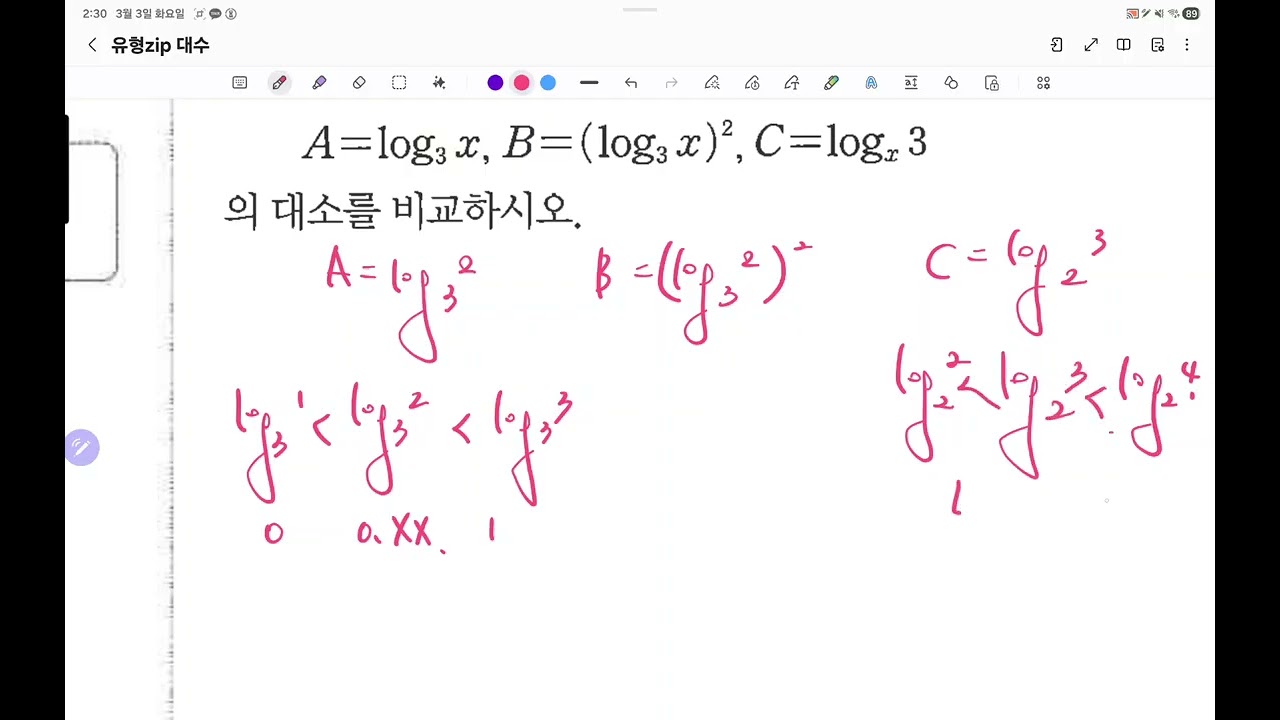 2:30 3월 3일 화요일 89
유형zip 대수
A=log₃ x, B=(log₃ x)², C=logₓ 3
의 대소를 비교하시오.
A = log₃ 2 B = (log₃ 2)² C = log₂ 3
log₂ 2 < log₂ 3 < log₂ 4
log₃ 1 < log₃ 2 < log₃ 3
1
0 0.XX 1